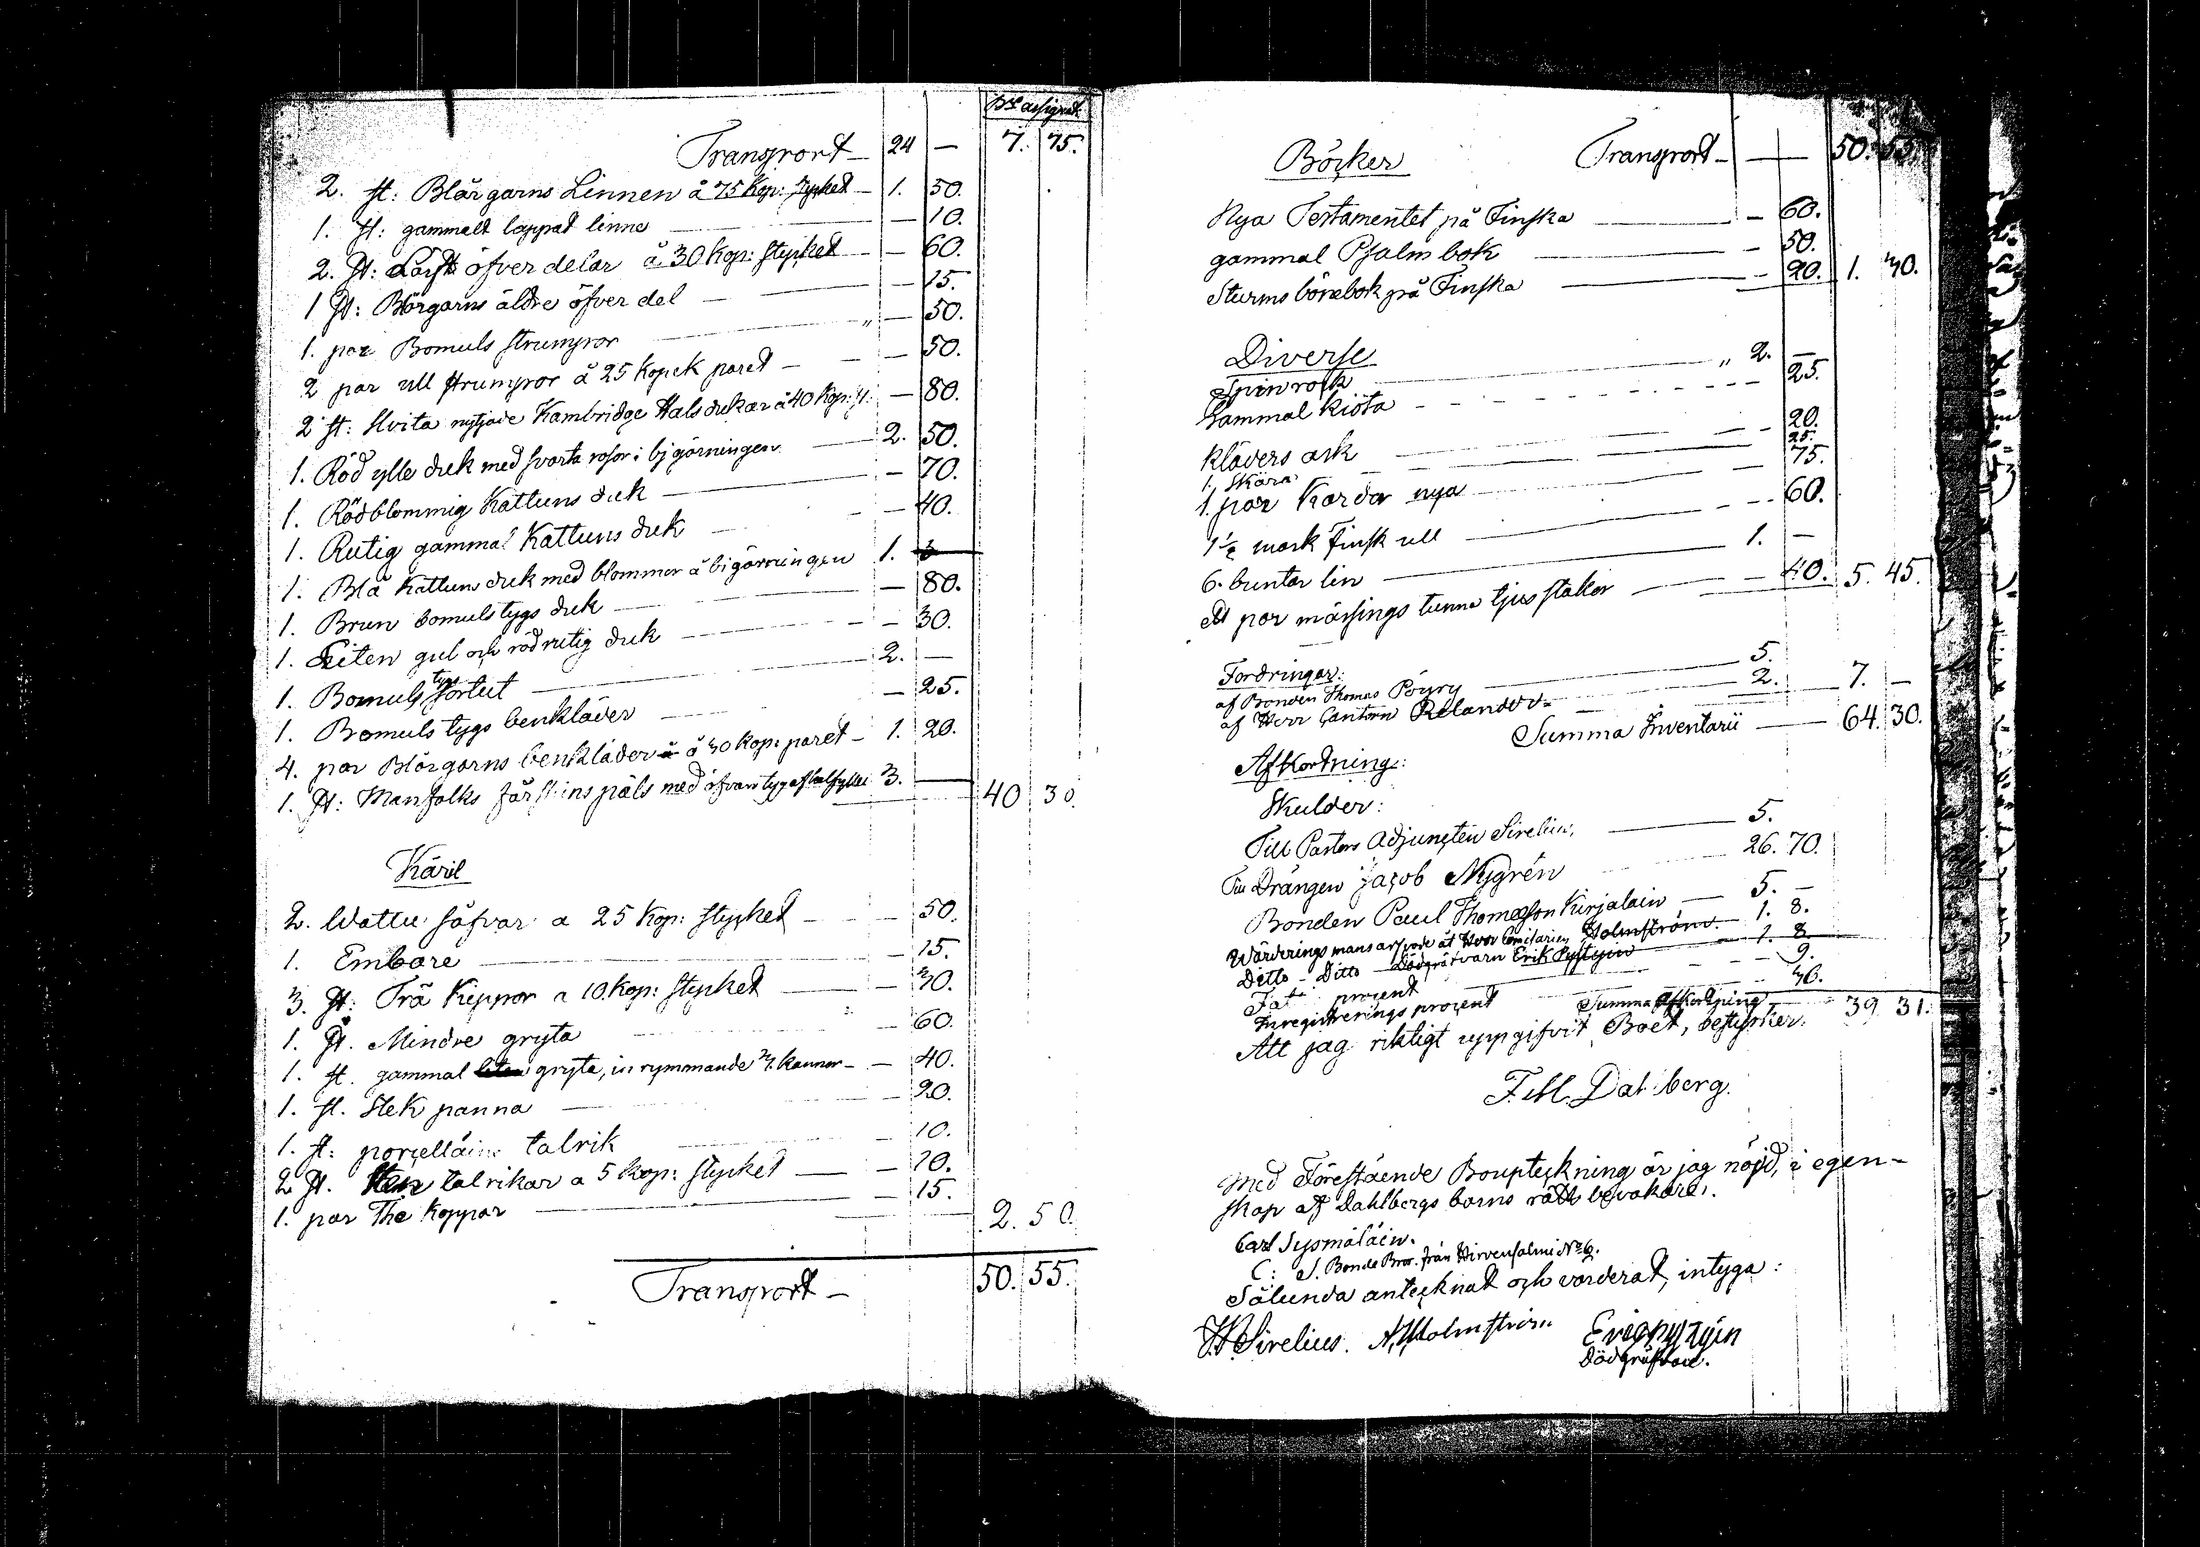 Rbl assignat
Transport — 24 — 7. 75.
2. st: Blårgarns Linnen å 75 Kop: stycket — 1. 50.
1. st: gammalt lappat linne — 10.
2. st: öfverdelar å 30 Kop: stycket — 60.
1 st: Blårgarns äldre öfverdel — 15.
1. par Bomuls strumpor „ — 50.
2 par ull strumpor å 25 Kopek paret — 50.
2 st: Hvita nytjade Kambridge Halsdukar å 40 Kop: st. — 80.
1. Röd ylle duk med svarta rosor i bjgörningen — 2. 50.
1. Rödblommig Kattuns duk — 70.
1. Rutig gammal Kattuns duk — 40.
1. Blå Kattuns duk med blommor å bigörningen 1. —
1. Brun bomulstygs duk — 80.
1. Liten gul och rödrutig duk — 30.
1. Bomuls tygs sortut — 2. —
1. Bomuls tygs benkläder — 25.
4. par Blårgarns benkläder å 30 Kop: paret — 1. 20.
1. st: Manfolks fårskins päls med öfvan tyg af halfylle 3. — 40 30.
Käril
2. Wattu såfvar a 25 Kop: stycket — 50.
1. Embare — 15.
3. st: Trä Kippor a 10. Kop: stycket — 30.
1. st. Mindre gryta — 60.
1. st. gammal liten gryta, in rymmande 2/1. kannor — 40.
1. st. Stek panna — 20.
1. st: porcelläins talrik — 10.
2 st. Sten talrikar a 5 Kop: stycket — 10.
1. par The koppar — 15.
2. 50.
Transport — 50. 55.
Böcker Transport — 50. 55.
Nya Testamentet på Finska — 60.
gammal Psalmbok — 50.
Sturms bönebok på Finska — 20. 1. 30.
Diverse
Spinrock „ 2. —
Gammal kista — 25.
klöfvers ask — 20.
1. Skära 25.
1. par Kardor nya — 75.
1 1/2 mark Finsk ull — 60.
6. buntar lin — 1. —
ett par mässings tunna ljusstakor — 40. 5. 45.
Fordringar:
af Bonden Thomas Pöyry — 5.
af Herr Cantorn Relander — 2. — 7. —
Summa Inventarii — 64. 30.
Afkortning:
Skulder:
Till Pastors Adjuncten Sirelius, — 5.
Till Drängen Jacob Nygrén — 26. 70.
Bonden Paul Thomasson Kirjalain — 5. —
Wärderings mans arfvode åt Herr Holmström — 1. 8.
Ditto — Ditto — Dödgräfvarn Erik Pystyin — 1. 8.
procent — 9.
Inregistrerings procent — 36.
Summa Afkortning — 39 31.
Att jag riktigt uppgifvit Boet, bestyrker.
F. M. Dahlberg.
Med Förestående Boupteckning är jag nöjd, i egen-
skap af Dahlbergs barns rätts bevakare.
Carl Sysmäläin.
C: S. Bonde Bror. från Hirvensalmi No 6.
Sålunda antecknat och värderat, intyga:
Sirelius. A. Holmström Eric pystyin
Dödgräfvare.